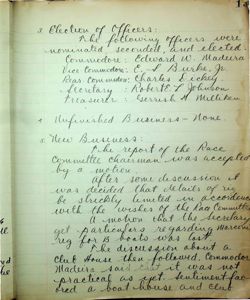 1
3 Election of Officers:
The following officers were
nominated seconded, and elected.
Commodore: Edward W. Madeira
Vice Commodore: C. L. Burke, Jr.
Rear Commodore: Charles Dickey
Secretary: Robert L. Johnson
Treasurer: Gerrish H. Milliken
4 Unfinished Business - None.
5 New Business:
The report of the Race
Committee chairman was accepted
by a motion.
After some discussion it
was decided that details of rig
be strictly limited in accordance
with the wishes of the Race Committee
A motion that the Secretary
get particulars regarding Marconi
rig for B boats was lost.
The discussion about a
Club House then followed. Commodore
Madeira said that it was not
practical as yet sentiment fa-
vored a boat house and club